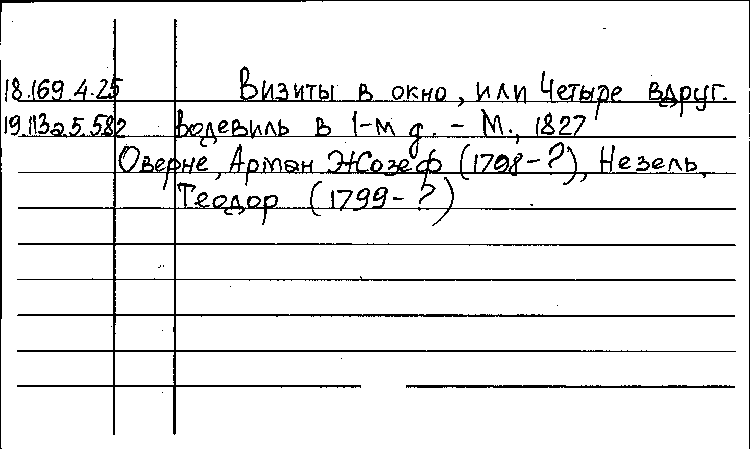 18.169.4.25 Визиты в окно, или Четыре вдруг.
19.113а.5.582 Водевиль в 1-м д. - М., 1827
Оверне, Арман Жозеф (1798-?), Незель,
Теодор (1799-?)